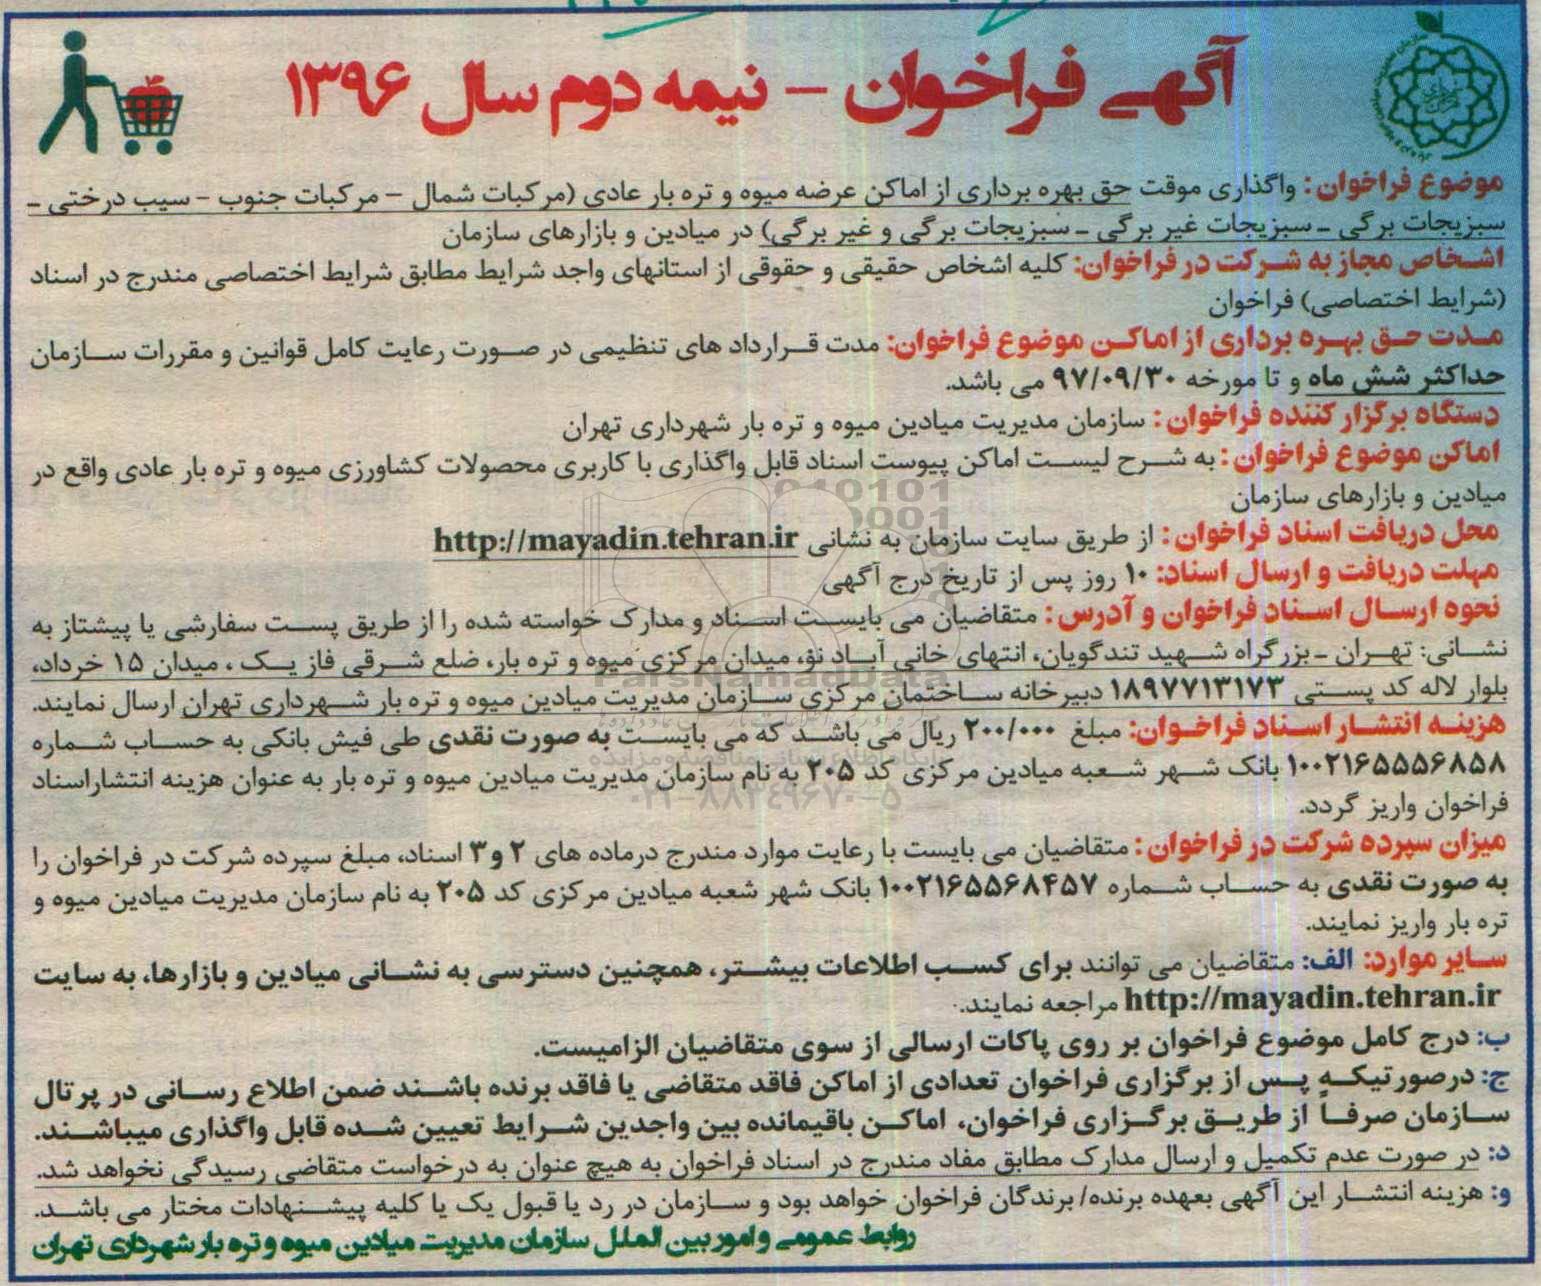 آگهی فراخوان - نیمه دوم سال ۱۳۹۶
موضوع فراخوان: واگذاری موقت حق بهره برداری از اماکن عرضه میوه و تره بار عادی (مرکبات شمال - مرکبات جنوب - سیب درختی -
سبزیجات برگی - سبزیجات غیر برگی - سبزیجات برگی و غیر برگی) در میادین و بازارهای سازمان
اشخاص مجاز به شرکت در فراخوان: کلیه اشخاص حقیقی و حقوقی از استانهای واجد شرایط مطابق شرایط اختصاصی مندرج در اسناد
(شرایط اختصاصی) فراخوان
مدت حق بهره برداری از اماکن موضوع فراخوان: مدت قرارداد های تنظیمی در صورت رعایت کامل قوانین و مقررات سازمان
حداکثر شش ماه و تا مورخه ۹۷/۰۹/۳۰ می باشد.
دستگاه برگزار کننده فراخوان: سازمان مدیریت میادین میوه و تره بار شهرداری تهران
اماکن موضوع فراخوان: به شرح لیست اماکن پیوست اسناد قابل واگذاری با کاربری محصولات کشاورزی میوه و تره بار عادی واقع در
میادین و بازارهای سازمان
محل دریافت اسناد فراخوان: از طریق سایت سازمان به نشانی http://mayadin.tehran.ir
مهلت دریافت و ارسال اسناد: ۱۰ روز پس از تاریخ درج آگهی
نحوه ارسال اسناد فراخوان و آدرس: متقاضیان می بایست اسناد و مدارک خواسته شده را از طریق پست سفارشی یا پیشتاز به
نشانی: تهران - بزرگراه شهید تندگویان، انتهای خانی آباد نو، میدان مرکزی میوه و تره بار، ضلع شرقی فاز یک، میدان ۱۵ خرداد،
بلوار لاله کد پستی ۱۸۹۷۷۱۳۱۷۳ دبیرخانه ساختمان مرکزی سازمان مدیریت میادین میوه و تره بار شهرداری تهران ارسال نمایند.
هزینه انتشار اسناد فراخوان: مبلغ ۲۰۰/۰۰۰ ریال می باشد که می بایست به صورت نقدی طی فیش بانکی به حساب شماره
۱۰۰۲۱۶۵۵۵۶۸۵۸ بانک شهر شعبه میادین مرکزی کد ۲۰۵ به نام سازمان مدیریت میادین میوه و تره بار به عنوان هزینه انتشار اسناد
فراخوان واریز گردد.
میزان سپرده شرکت در فراخوان: متقاضیان می بایست با رعایت موارد مندرج درماده های ۲ و ۳ اسناد، مبلغ سپرده شرکت در فراخوان را
به صورت نقدی به حساب شماره ۱۰۰۲۱۶۵۵۶۸۴۵۷ بانک شهر شعبه میادین مرکزی کد ۲۰۵ به نام سازمان مدیریت میادین میوه و
تره بار واریز نمایند.
سایر موارد: الف: متقاضیان می توانند برای کسب اطلاعات بیشتر، همچنین دسترسی به نشانی میادین و بازارها، به سایت
http://mayadin.tehran.ir مراجعه نمایند.
ب: درج کامل موضوع فراخوان بر روی پاکات ارسالی از سوی متقاضیان الزامیست.
ج: درصورتیکه پس از برگزاری فراخوان تعدادی از اماکن فاقد متقاضی یا فاقد برنده باشند ضمن اطلاع رسانی در پرتال
سازمان صرفاً از طریق برگزاری فراخوان، اماکن باقیمانده بین واجدین شرایط تعیین شده قابل واگذاری میباشند.
د: در صورت عدم تکمیل و ارسال مدارک مطابق مفاد مندرج در اسناد فراخوان به هیچ عنوان به درخواست متقاضی رسیدگی نخواهد شد.
و: هزینه انتشار این آگهی بعهده برنده/ برندگان فراخوان خواهد بود و سازمان در رد یا قبول یک یا کلیه پیشنهادات مختار می باشد.
روابط عمومی و امور بین الملل سازمان مدیریت میادین میوه و تره بار شهرداری تهران
ParsNamadData
۰۲۱-۸۸۳۴۹۶۷۰-۵